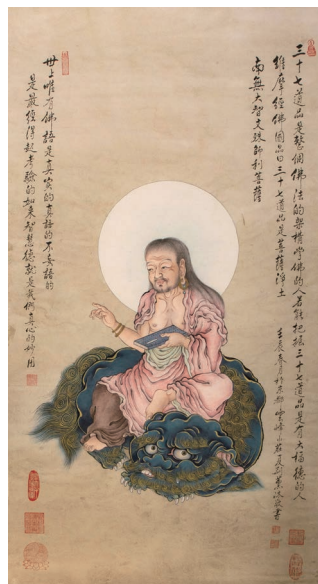 三十七道品是整個佛法的架構學佛的人若能把握三十七道品是有大福德的人
維摩經佛國品曰三十七道品是菩薩淨土
南無大智文殊師利菩薩
世上唯有佛語是真實的真語的不妄語的
是最經得起考驗的如來智慧德就是我們真心的妙用